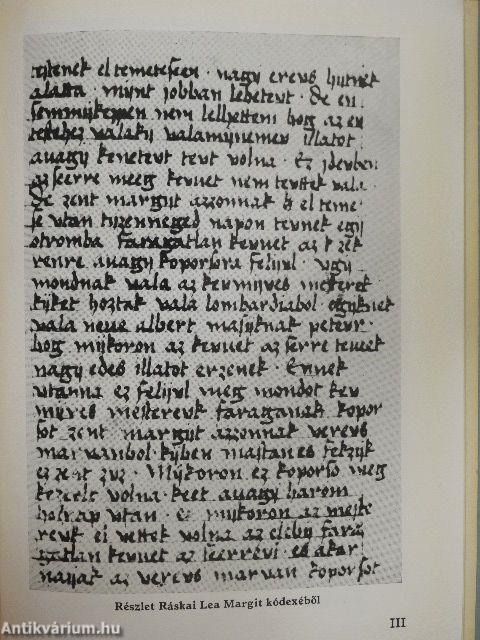 testenek el temeteseen · nagy erevs hytnek
alatta · mynt jobban lehetevt · De en
semmykeppen nem lelhettem hog az ev
testehez valaky valamynemev illatot
auagy kenetevt tevt volna · Ez ydevben
az seerre meeg kevuet nem tevttek vala
De zent margyt azzonnak ev el teme
se vtan tyzenneged napon tevnek egy
otromba faragatlan kevuet az kzek
renre auagy koporsora felyvl · vgy
mondnak vala az kevmyves mesterek
kyket hoztak vala lombardiabol · egyknek
vala neue albert masyknak petevr ·
hog mykoron az kevuet az seerre teveek
nagy edes illatot erzenek · Ennek
vtanna ez felyvl meg mondot kev
myves mesterevk faraganak kopor
sot zent margyt azzonnak verevs
marvanbol · kyben mastanes fekzyk
ez zent zvz · Mykoron ez koporso meg
kezevlt volna · keet auagy harom
holnap vtan · es mykoron az meste
revk el vettek volna az eleby fara
gatlan kevuet az seerrevl · es akar
nayak az verevs marvan koporsot
Részlet Ráskai Lea Margit kódexéből
III
Antikvárium.hu